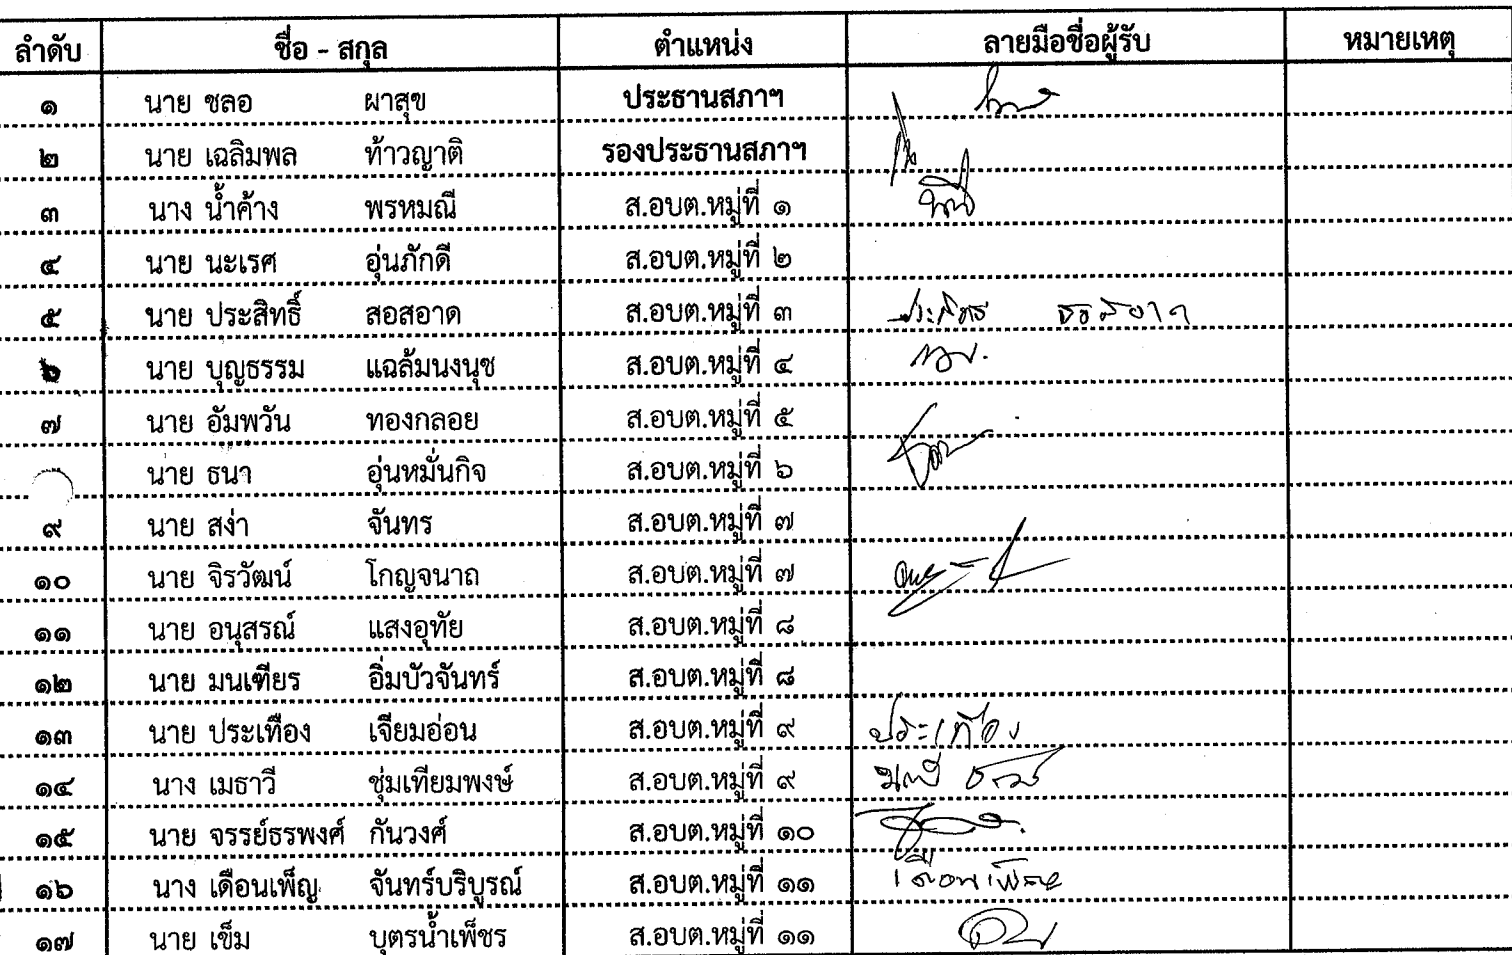 ลำดับ ชื่อ - สกุล ตำแหน่ง ลายมือชื่อผู้รับ หมายเหตุ
๑ นาย ชลอ ผาสุข ประธานสภาฯ
๒ นาย เฉลิมพล ท้าวญาติ รองประธานสภาฯ
๓ นาง น้ำค้าง พรหมณี ส.อบต.หมู่ที่ ๑
๔ นาย นะเรศ อุ่นภักดี ส.อบต.หมู่ที่ ๒
๕ นาย ประสิทธิ์ สอสอาด ส.อบต.หมู่ที่ ๓
๖ นาย บุญธรรม แฉล้มนงนุช ส.อบต.หมู่ที่ ๔
๗ นาย อัมพวัน ทองกลอย ส.อบต.หมู่ที่ ๕
นาย ธนา อุ่นหมั่นกิจ ส.อบต.หมู่ที่ ๖
๙ นาย สง่า จันทร ส.อบต.หมู่ที่ ๗
๑๐ นาย จิรวัฒน์ โกญจนาถ ส.อบต.หมู่ที่ ๗
๑๑ นาย อนุสรณ์ แสงอุทัย ส.อบต.หมู่ที่ ๘
๑๒ นาย มนเฑียร อิ่มบัวจันทร์ ส.อบต.หมู่ที่ ๘
๑๓ นาย ประเทือง เจียมอ่อน ส.อบต.หมู่ที่ ๙ ประเทือง
๑๔ นาง เมธาวี ชุ่มเทียมพงษ์ ส.อบต.หมู่ที่ ๙
๑๕ นาย จรรย์ธรพงศ์ กันวงศ์ ส.อบต.หมู่ที่ ๑๐
๑๖ นาง เดือนเพ็ญ จันทร์บริบูรณ์ ส.อบต.หมู่ที่ ๑๑ เดือนเพ็ญ
๑๗ นาย เข็ม บุตรน้ำเพ็ชร ส.อบต.หมู่ที่ ๑๑